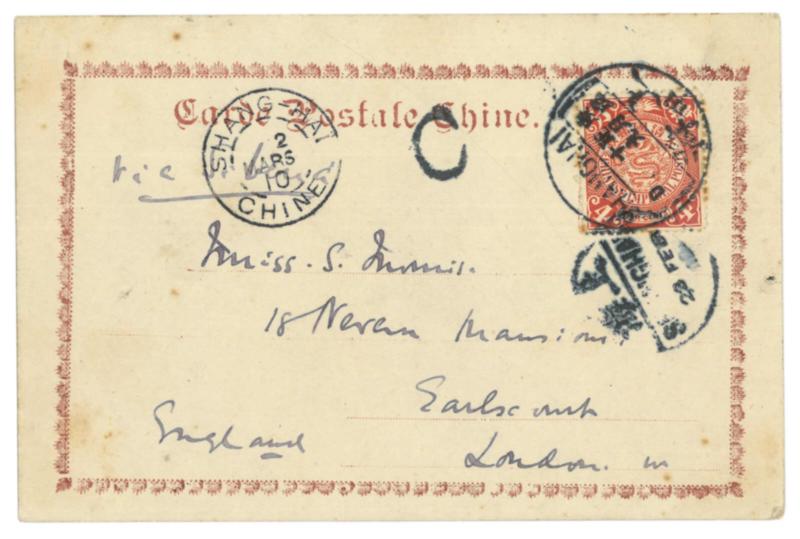 Carte Postale Chine.
SHANG-HAI
2
MARS
10
CHINE
C
via
SHANGHAI
4 4
28 FEB
S
Miss. S. Morris.
18 Nevern Mansions
Earlscourt
London. W
England